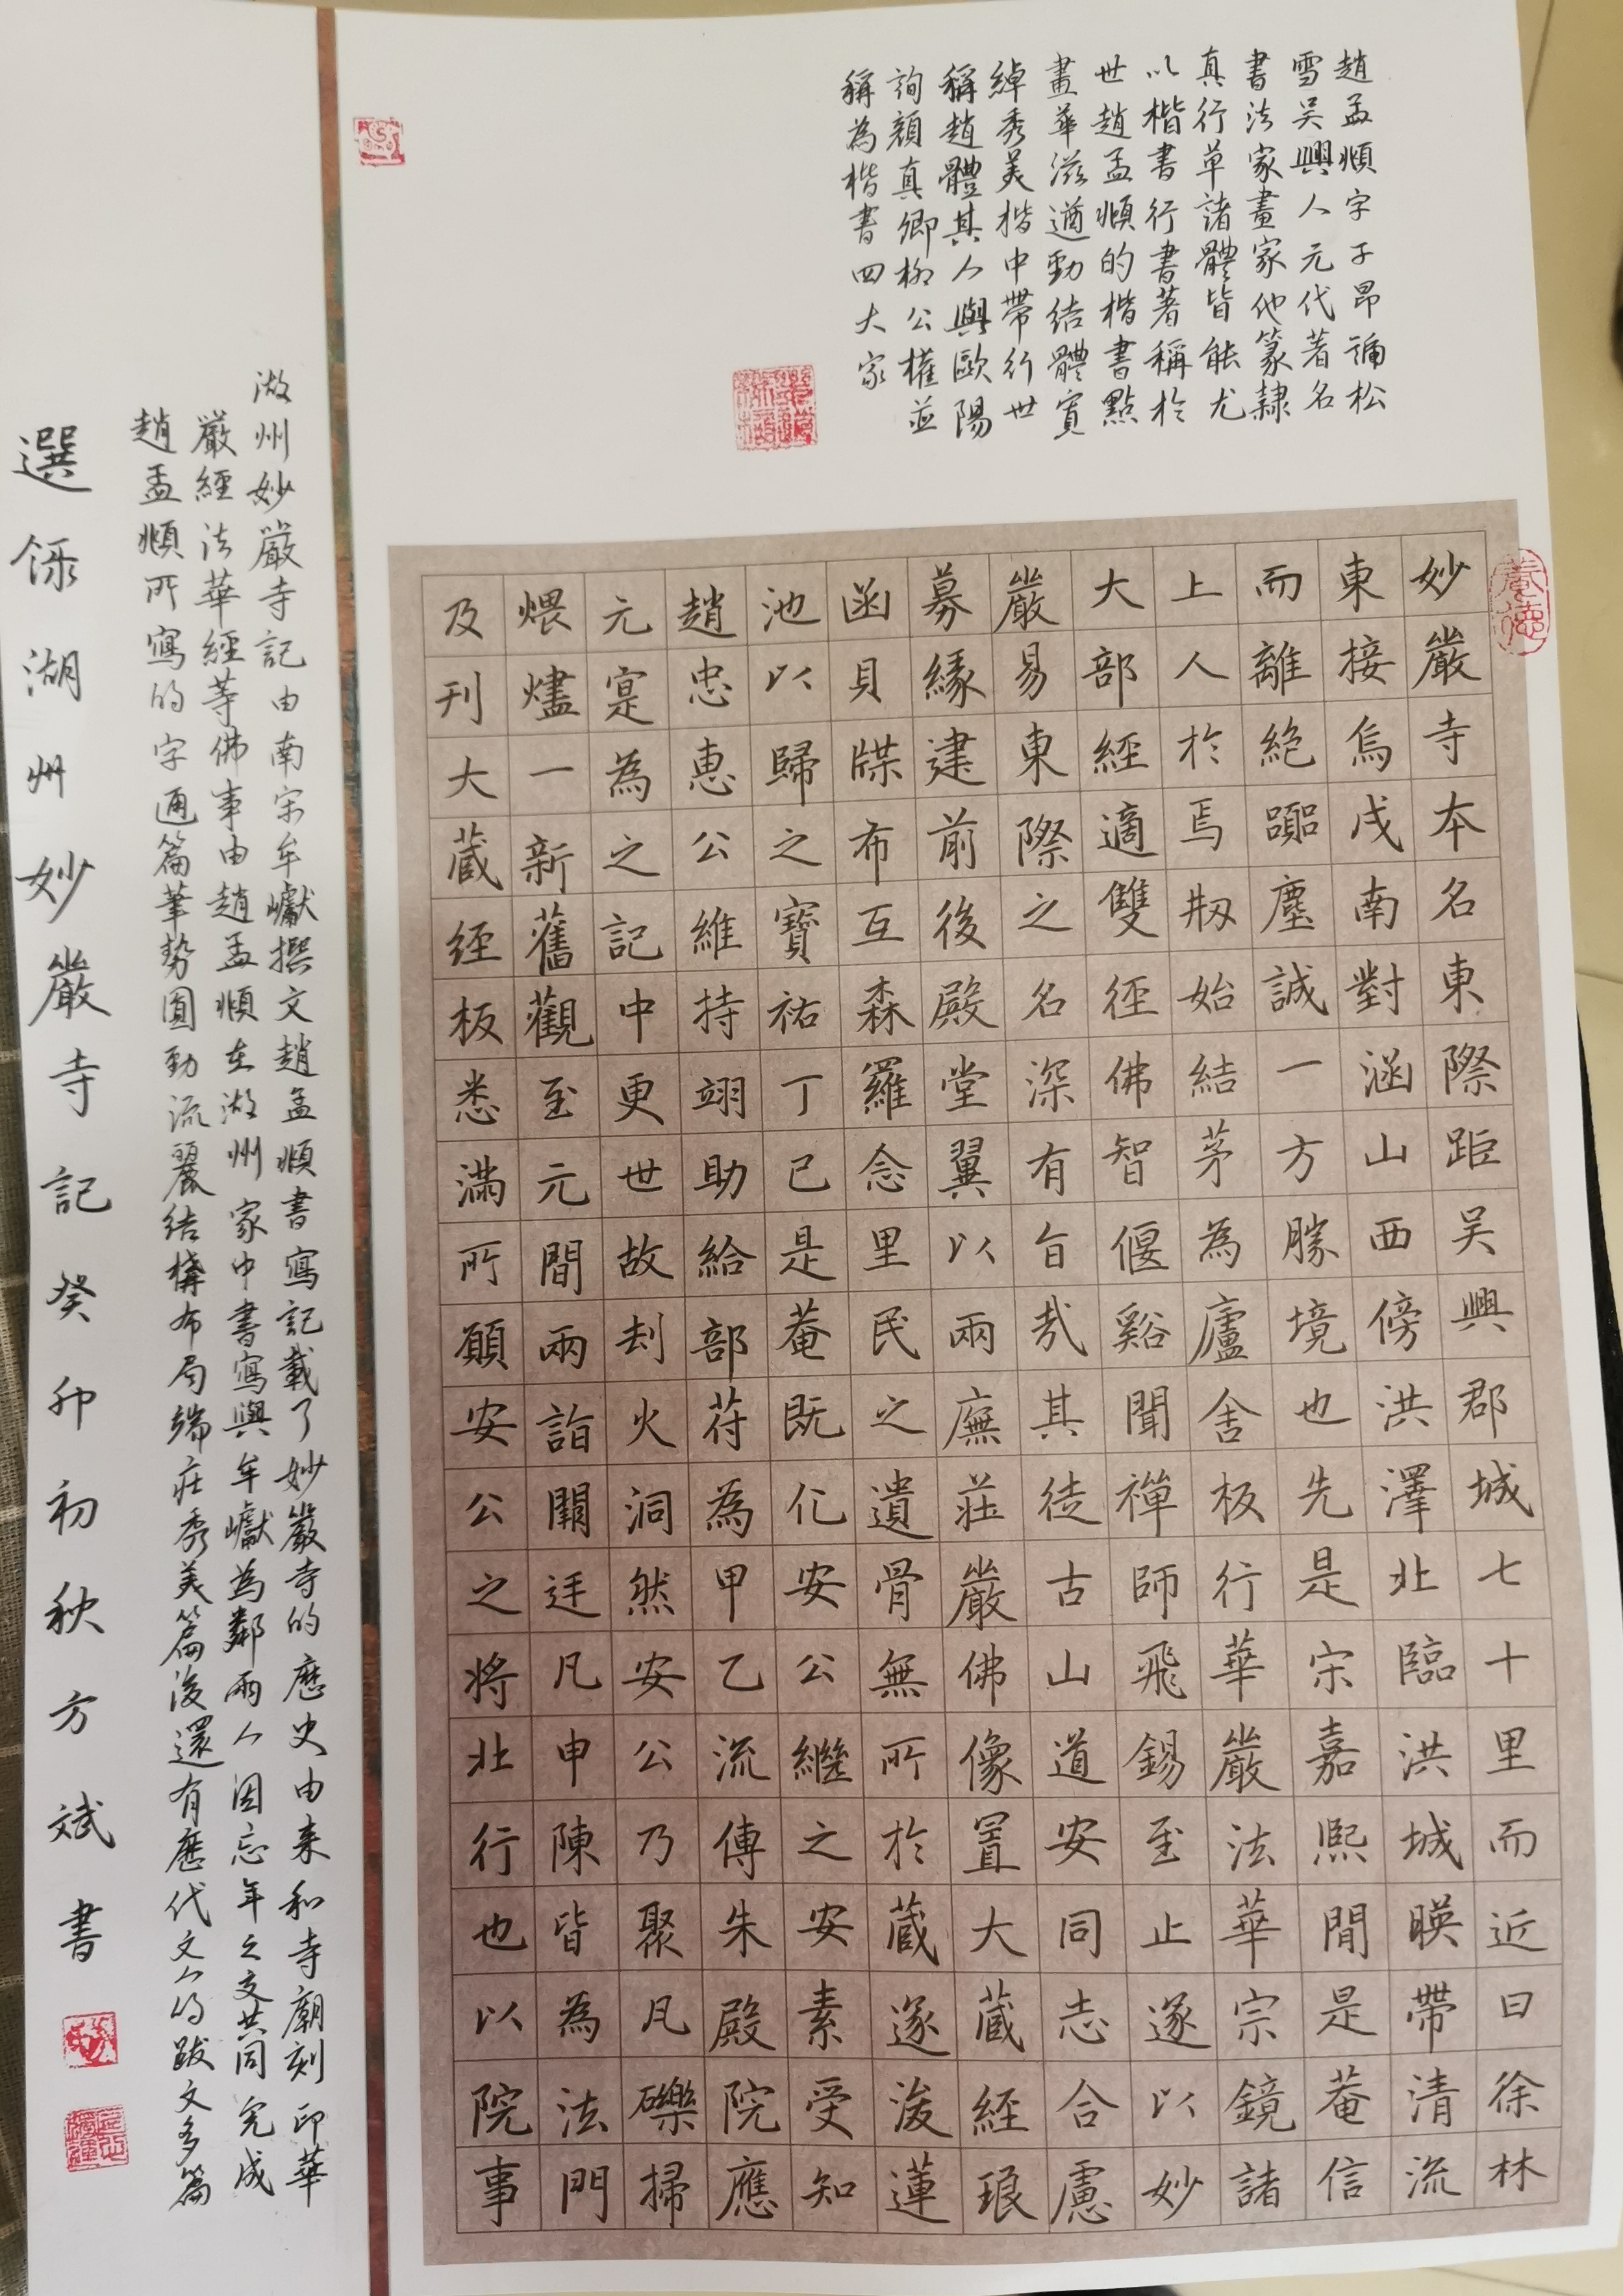 趙孟頫字子昂號松
雪吴興人元代著名
書法家畫家他篆隸
真行草諸體皆能尤
以楷書行書著稱於
世趙孟頫的楷書點
畫華滋遒勁結體寬
綽秀美楷中帶行世
稱趙體其人與歐陽
詢顏真卿柳公權並
稱為楷書四大家
養德
妙嚴寺本名東際距吴興郡城七十里而近曰徐林
東接烏戍南對涵山西傍洪澤北臨洪城暎帶清流
而離絶躁塵誠一方勝境也先是宋嘉熙間是菴信
上人於焉剙始結茅為廬舍板行華嚴法華宗鏡諸
大部經適雙徑佛智偃谿聞禪師飛錫至止遂以妙
嚴易東際之名深有旨哉其徒古山道安同志合慮
募緣建前後殿堂翼以兩廡莊嚴佛像置大藏經琅
函貝牒布互森羅念里民之遺骨無所於藏遂浚蓮
池以歸之寶祐丁巳是菴既化安公繼之安素受知
趙忠惠公維持翊助給部苻為甲乙流傳朱殿院應
元寔為之記中更世故刦火洞然安公乃聚凡礫掃
煨燼一新舊觀至元間兩詣闕廷凡申陳皆為法門
及刊大藏經板悉滿所願安公之將北行也以院事
湖州妙嚴寺記由南宋牟巘撰文趙孟頫書寫記載了妙嚴寺的歷史由来和寺廟刻印華
嚴經法華經等佛事由趙孟頫在湖州家中書寫與牟巘為鄰兩人因忘年之交共同完成
趙孟頫所寫的字通篇筆勢圓勁流麗結構布局端莊秀美篇後還有歷代文人的跋文多篇
選錄湖州妙嚴寺記癸卯初秋方斌書